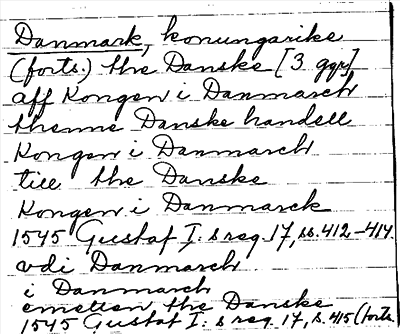 Danmark, konungarike
(forts.) the Danske [3 ggr]
aff Kongen i Danmarch
thenne Danske handell
Kongen i Danmarch
till the Danske
Kongen i Danmarck
1545 Gustaf I:s reg. 17, ss. 412-414.
vdi Danmarch
i Danmarch
emellen the Danske
1545 Gustaf I:s reg. 17, s. 415 (forts.